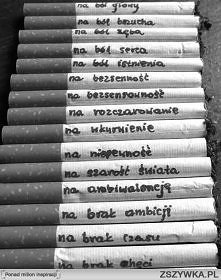 na ból głowy
na ból brzucha
na ból zęba
na ból serca
na ból istnienia
na bezsenność
na bezsensowność
na rozczarowanie
na wkurwienie
na niepewność
na szarość świata
na ambiwalencję
na brak ambicji
na brak czasu
na brak chęci
Ponad milion inspiracji
ZSZYWKA.PL